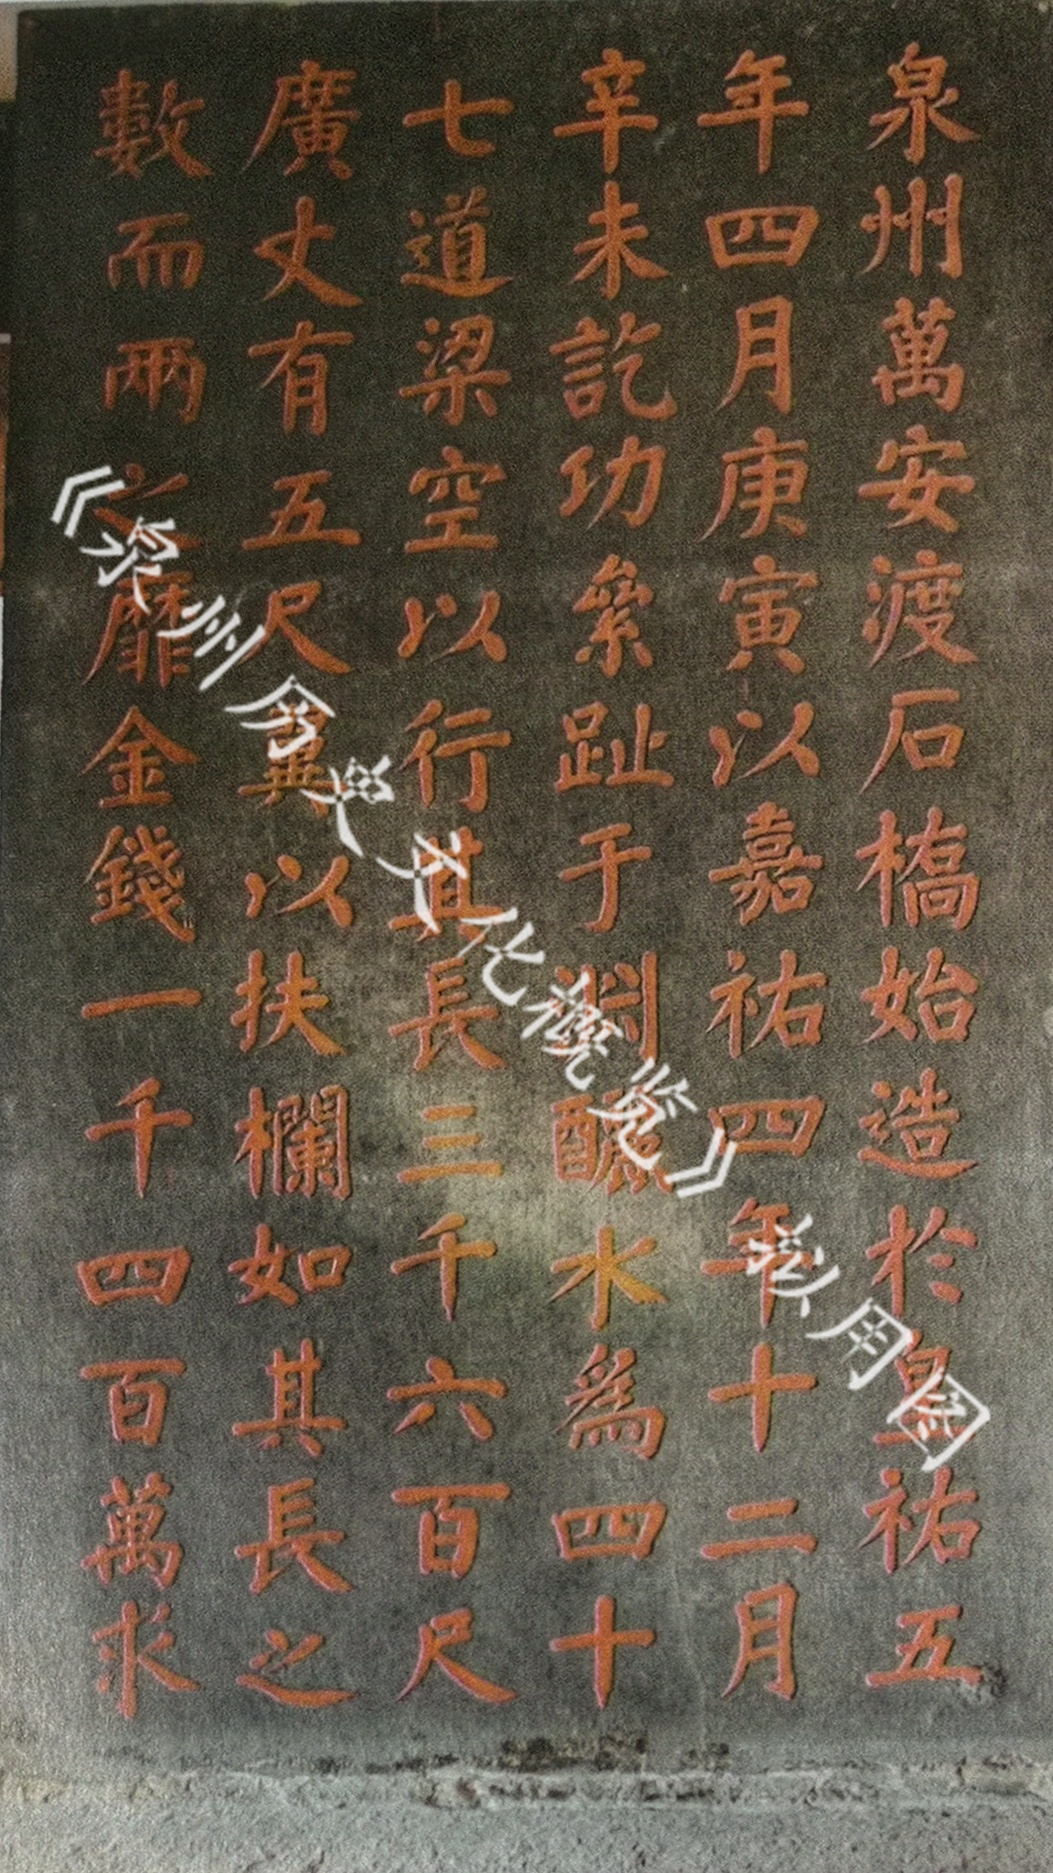 泉州萬安渡石橋始造於皇祐五
年四月庚寅以嘉祐四年十二月
辛未訖功絫趾于淵釃水爲四十
七道梁空以行其長三千六百尺
廣丈有五尺翼以扶欄如其長之
數而兩之靡金錢一千四百萬求
《泉州文化概览》用图